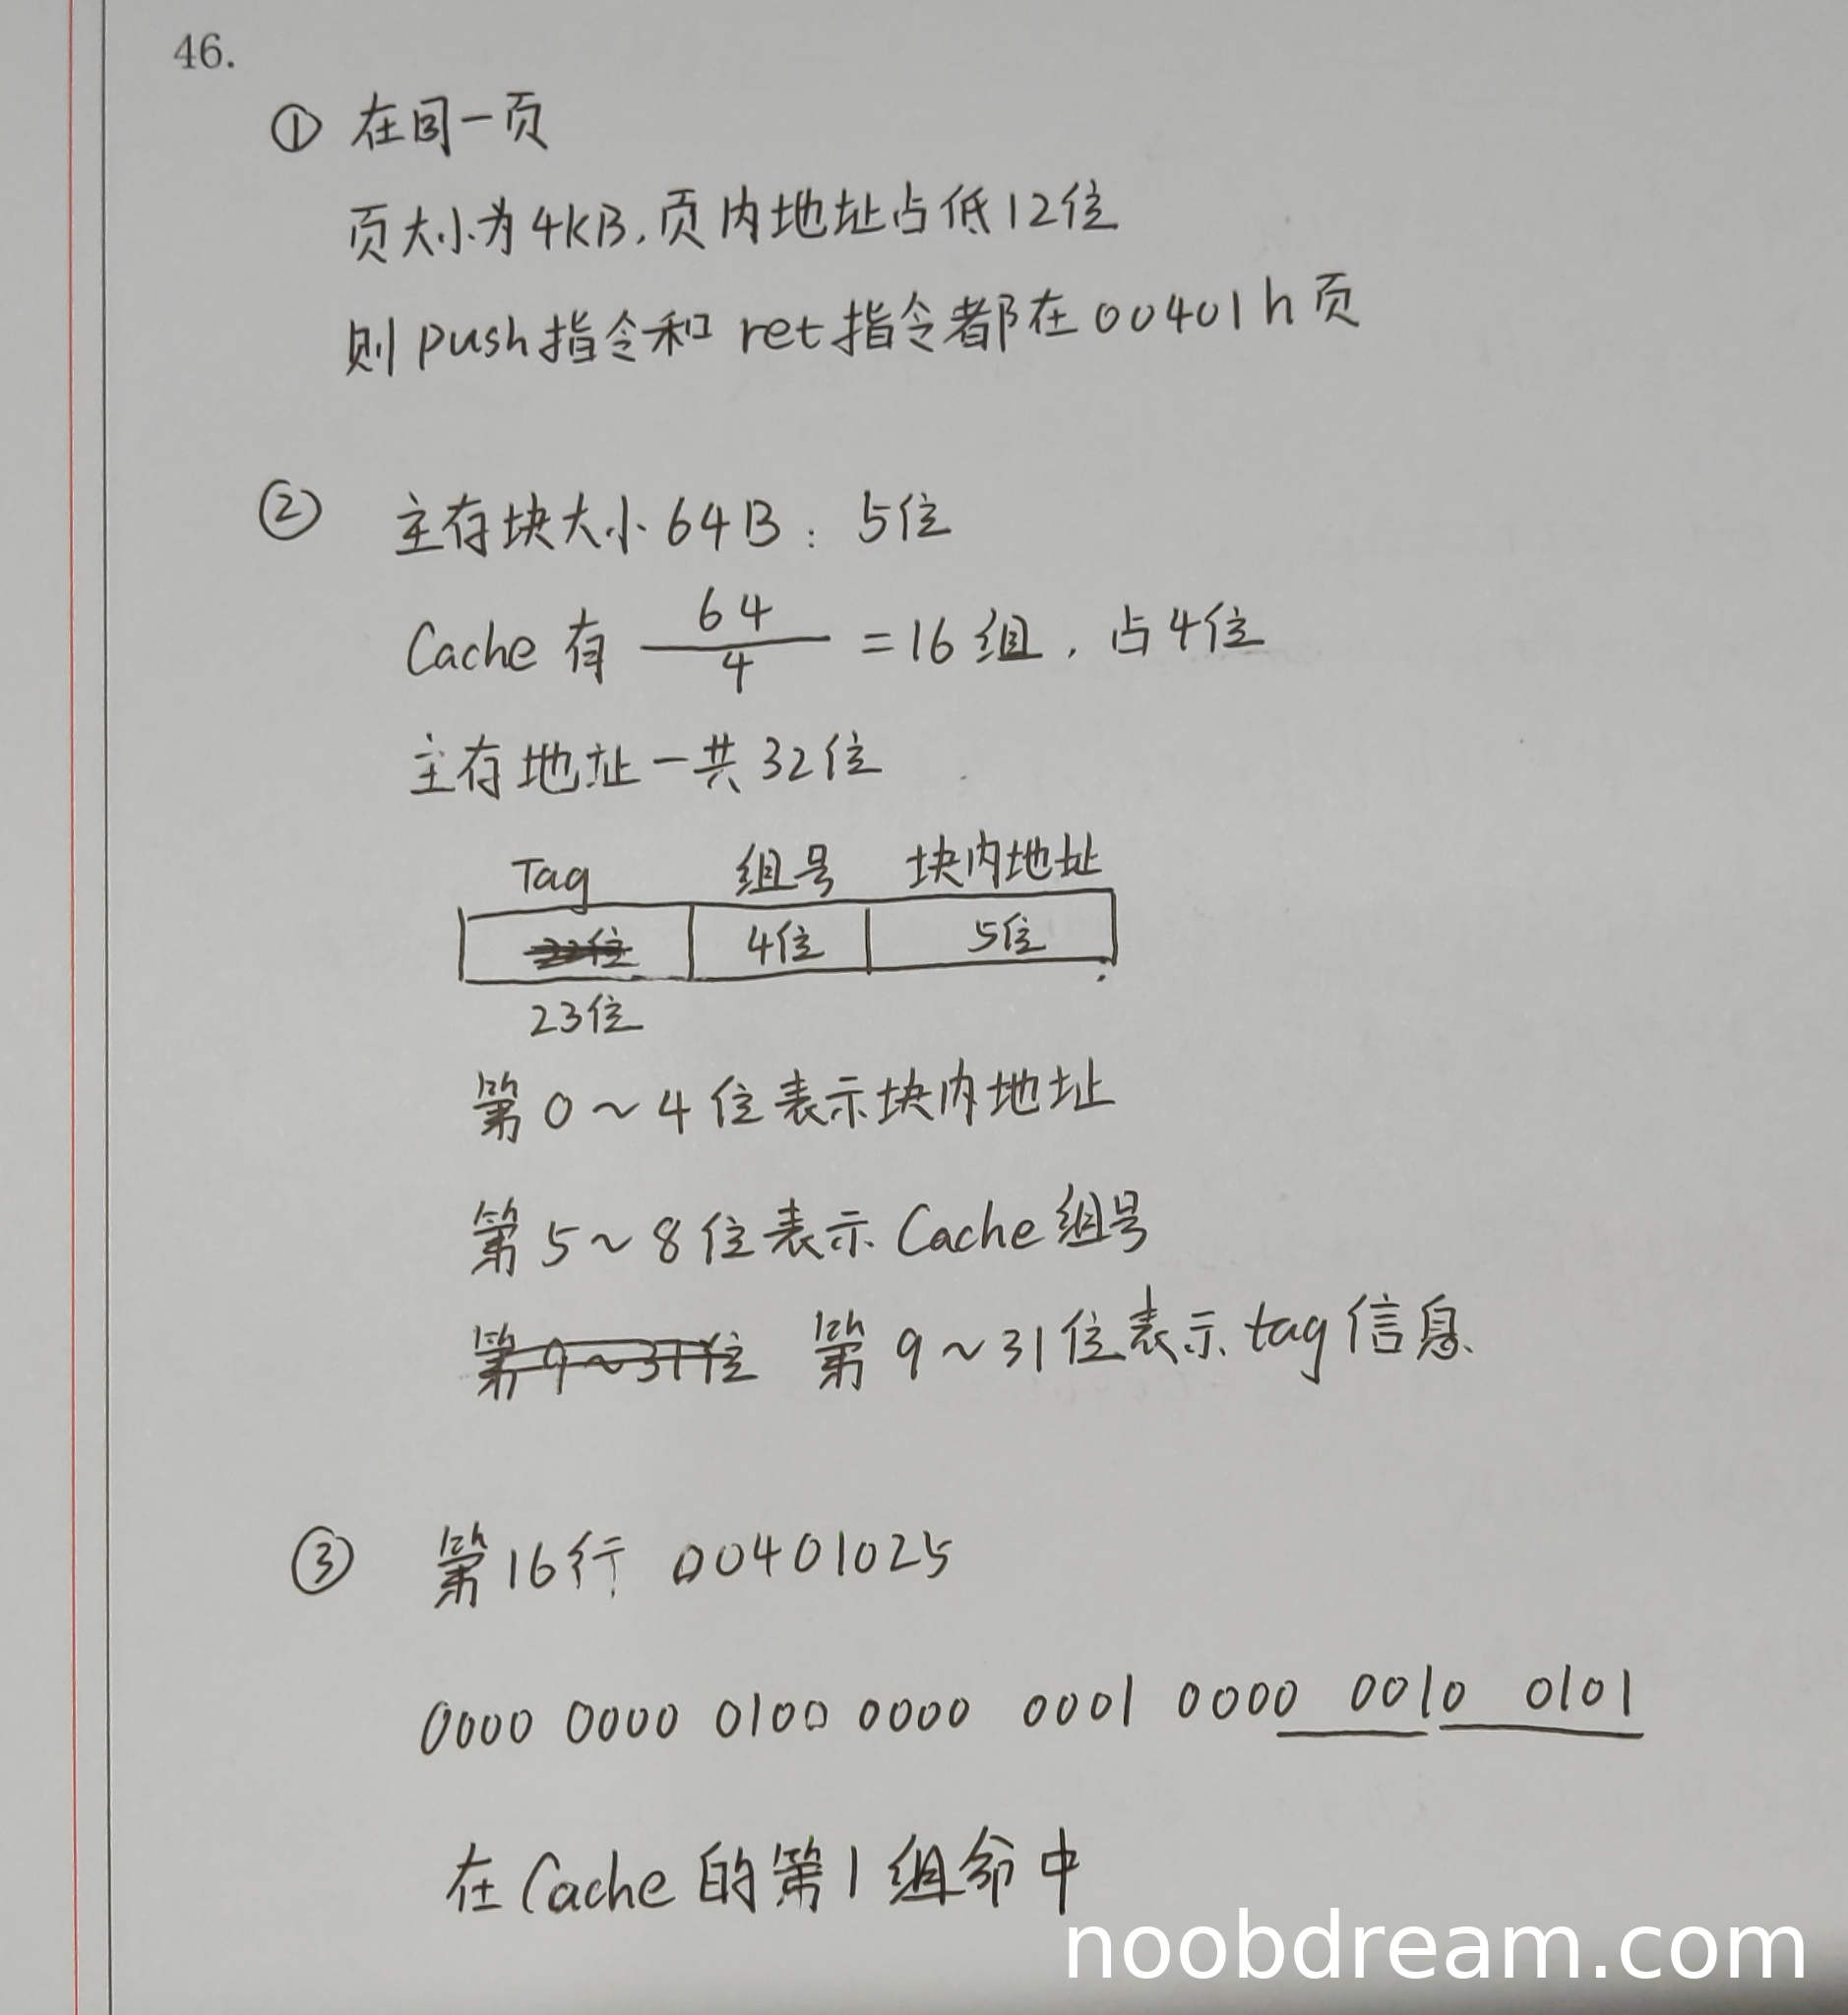 46.
① 在同一页
页大小为4KB,页内地址占低12位
则push指令和ret指令都在00401h页
② 主存块大小64B：5位
Cache有 64/4 =16组，占4位
主存地址一共32位
Tag 组号 块内地址
4位 5位
23位
第0~4位表示块内地址
第5~8位表示Cache组号
第9~31位 第9~31位表示tag信息
③ 第16行 00401025
0000 0000 0100 0000 0001 0000 0010 0101
在Cache的第1组命中
noobdream.com